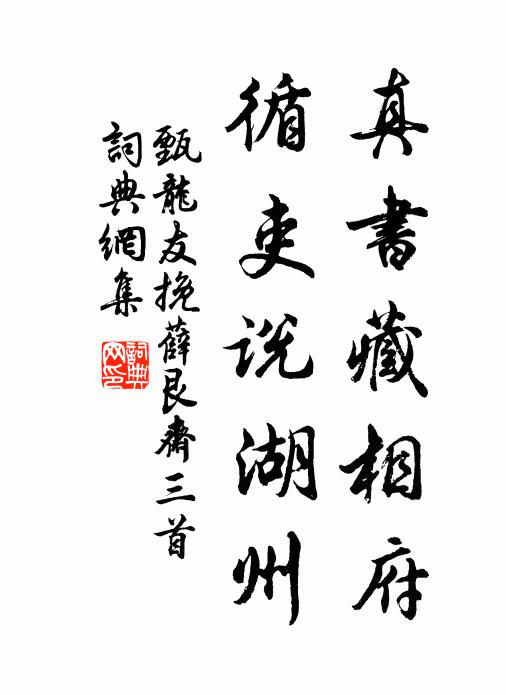 真書藏相府
循吏说湖州
甄龍友挽薛艮齋三首
詞典網集
詞典网印